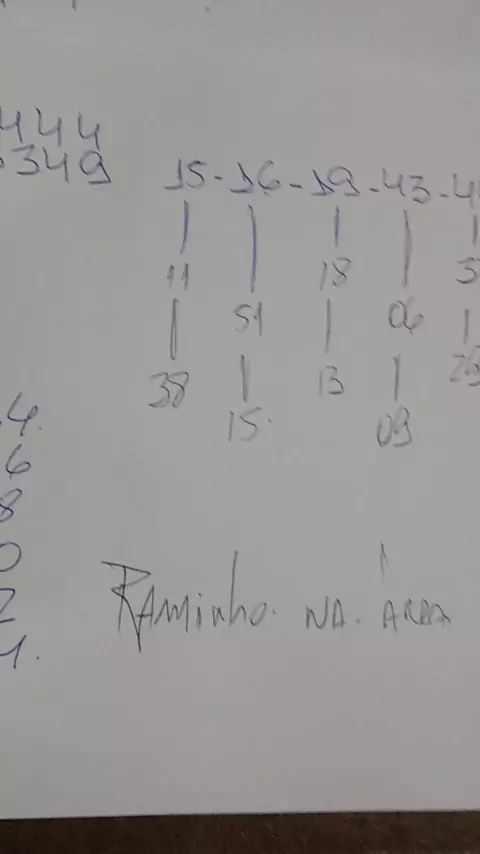 444
349
15-16-19-43-4
11 18 3
51 06
38 13 25
15. 09
4.
6
8
0
2
4.
Raminho. NA. ÁREA